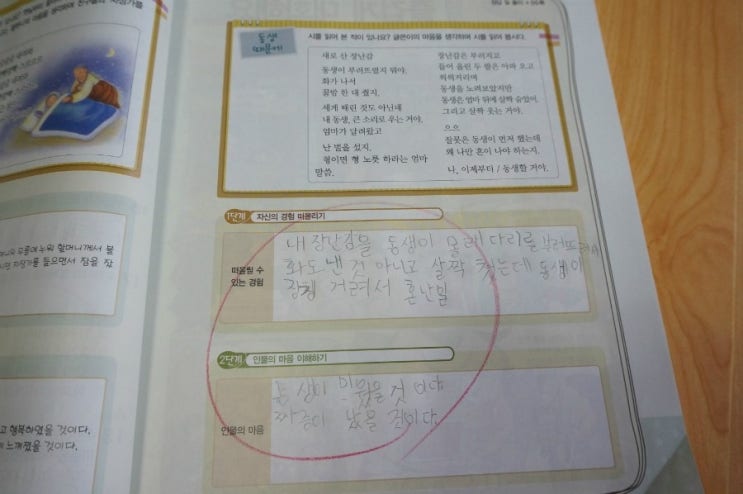 동생
때문에
시를 읽어 본 적이 있나요? 글쓴이의 마음을 생각하며 시를 읽어 봅시다.
새로 산 장난감
동생이 부러뜨렸지 뭐야.
화가 나서
꿀밤 한 대 줬지.
세게 때린 것도 아닌데
내 동생, 큰 소리로 우는 거야.
엄마가 달려왔고
난 벌을 섰지.
형이면 형 노릇 하라는 엄마
말씀.
장난감은 부러지고
들어 올린 두 팔은 아파 오고
씩씩거리며
동생을 노려보았지만
동생은 엄마 뒤에 살짝 숨었어.
그리고 살짝 웃는 거야.
으으
잘못은 동생이 먼저 했는데
왜 나만 혼이 나야 하는지.
나, 이제부터 / 동생할 거야.
1단계 자신의 경험 떠올리기
떠올릴 수
있는 경험
내 장난감을 동생이 몰래 다리를 부러뜨려서
화도 낸 것 아니고 살짝 쳤는데 동생이
거려서 혼난일
2단계 인물의 마음 이해하기
인물의 마음
동생이 미웠을 것 이다
짜증이 났을 것이다.
무릎에 누워 할머니께서 불
자장가를 들으면서 잠을 잤
고 행복하였을 것이다.
게 느껴졌을 것이다.